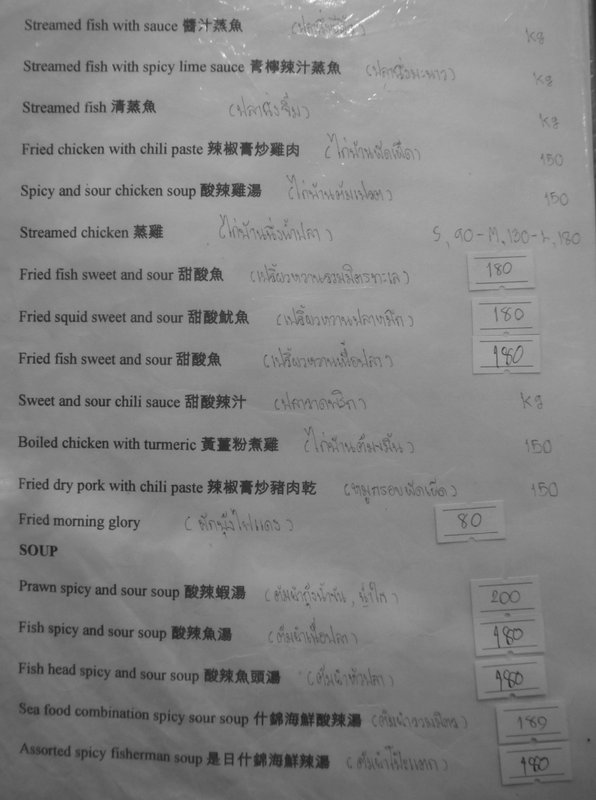 Streamed fish with sauce 醬汁蒸魚 kg
Streamed fish with spicy lime sauce 青檸辣汁蒸魚 (ปลานึ่งมะนาว) kg
Streamed fish 清蒸魚 (ปลานึ่งจิ้ม) kg
Fried chicken with chili paste 辣椒膏炒雞肉 (ไก่บ้านผัดเผ็ด) 150
Spicy and sour chicken soup 酸辣雞湯 (ไก่บ้านต้มเปรต) 150
Streamed chicken 蒸雞 (ไก่บ้านนึ่งน้ำปลา) S, 90-M, 130-L, 180
Fried fish sweet and sour 甜酸魚 (เปรี้ยวหวานรวมมิตรทะเล) 180
Fried squid sweet and sour 甜酸魷魚 (เปรี้ยวหวานปลาหมึก) 180
Fried fish sweet and sour 甜酸魚 (เปรี้ยวหวานเนื้อปลา) 180
Sweet and sour chili sauce 甜酸辣汁 (ปลาราดพริก) kg
Boiled chicken with turmeric 黃薑粉煮雞 (ไก่บ้านต้มขมิ้น) 150
Fried dry pork with chili paste 辣椒膏炒豬肉乾 (หมูกรอบผัดเผ็ด) 150
Fried morning glory (ผักบุ้งไฟแดง) 80
SOUP
Prawn spicy and sour soup 酸辣蝦湯 (ต้มยำกุ้งน้ำข้น, น้ำใส) 200
Fish spicy and sour soup 酸辣魚湯 (ต้มยำเนื้อปลา) 180
Fish head spicy and sour soup 酸辣魚頭湯 (ต้มยำหัวปลา) 180
Sea food combination spicy sour soup 什錦海鮮酸辣湯 (ต้มยำรวมมิตร) 180
Assorted spicy fisherman soup 是日什錦海鮮辣湯 (ต้มยำโป๊ะแตก) 180